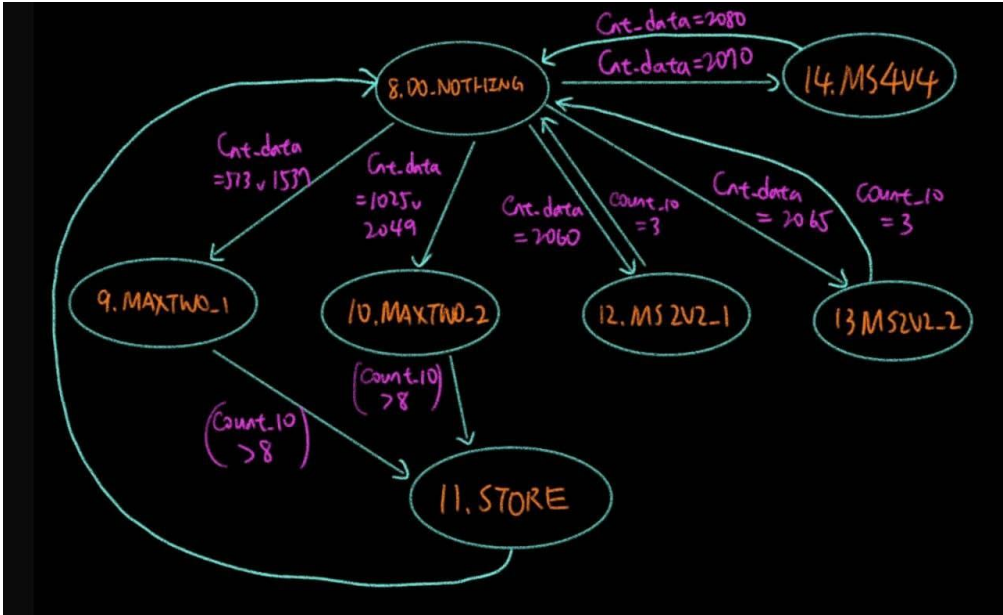 Cnt_data=2080
Cnt_data=2070
14.MS4V4
8.DO_NOTHING
Cnt_data
=513 v 1537
Cnt_data
=1025 v
2049
Cnt_data
=2060
count_10
=3
Cnt_data
=2065
count_10
=3
9.MAXTWO_1
10.MAXTWO_2
12.MS2V2_1
13MS2V2_2
(count_10
>8)
(count_10
>8)
11.STORE